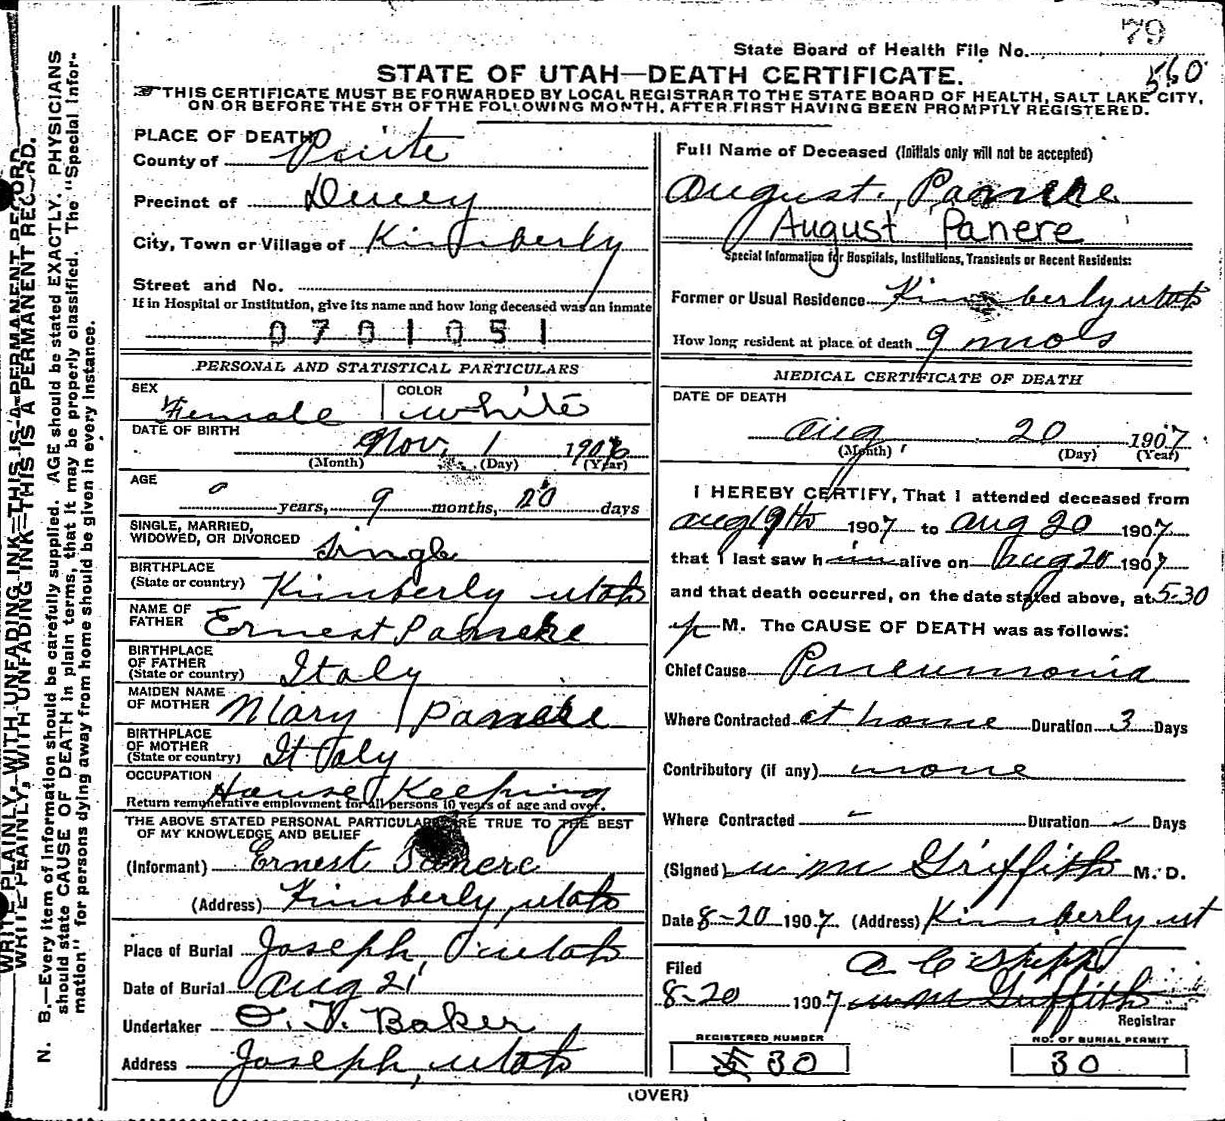 79
State Board of Health File No.
560
STATE OF UTAH—DEATH CERTIFICATE.
THIS CERTIFICATE MUST BE FORWARDED BY LOCAL REGISTRAR TO THE STATE BOARD OF HEALTH, SALT LAKE CITY,
ON OR BEFORE THE 5TH OF THE FOLLOWING MONTH, AFTER FIRST HAVING BEEN PROMPTLY REGISTERED.
PLACE OF DEATH
County of Paiute
Precinct of Dewey
City, Town or Village of Kimberly
Street and No.
If in Hospital or Institution, give its name and how long deceased was an inmate
0701051
PERSONAL AND STATISTICAL PARTICULARS
SEX Female COLOR white
DATE OF BIRTH Nov. 1 1906
(Month) (Day) (Year)
AGE 0 years, 9 months, 20 days
SINGLE, MARRIED,
WIDOWED, OR DIVORCED Single
BIRTHPLACE
(State or country) Kimberly utah
NAME OF
FATHER Ernest
BIRTHPLACE
OF FATHER
(State or country) Italy
MAIDEN NAME
OF MOTHER Mary
BIRTHPLACE
OF MOTHER
(State or country) Italy
OCCUPATION House Keeping
Return remunerative employment for all persons 10 years of age and over.
THE ABOVE STATED PERSONAL PARTICULARS ARE TRUE TO THE BEST
OF MY KNOWLEDGE AND BELIEF
(Informant) Ernest Panere
(Address) Kimberly, utah
Place of Burial Joseph, utah
Date of Burial Aug 21
Undertaker O. T. Baker
Address Joseph, utah
Full Name of Deceased (Initials only will not be accepted)
August
August Panere
Special Information for Hospitals, Institutions, Transients or Recent Residents:
Former or Usual Residence Kimberly utah
How long resident at place of death 9 mos
MEDICAL CERTIFICATE OF DEATH
DATE OF DEATH
Aug 20 1907
(Month) (Day) (Year)
I HEREBY CERTIFY, That I attended deceased from
Aug 19th 1907 to Aug 20 1907
that I last saw him alive on Aug 20 1907
and that death occurred, on the date stated above, at 5-30
P M. The CAUSE OF DEATH was as follows:
Chief Cause Pneumonia
Where Contracted at home Duration 3 Days
Contributory (if any) none
Where Contracted - Duration Days
(Signed) W M Griffith M. D.
Date 8-20 1907 (Address) Kimberly ut
Filed
8-20 1907 W M Griffith
Registrar
REGISTERED NUMBER
30
NO. OF BURIAL PERMIT
30
(OVER)
WRITE PLAINLY, WITH UNFADING INK—THIS IS A PERMANENT RECORD.
N. B.—Every item of information should be carefully supplied. AGE should be stated EXACTLY. PHYSICIANS
should state CAUSE OF DEATH in plain terms, that it may be properly classified. The "Special Infor-
mation" for persons dying away from home should be given in every instance.